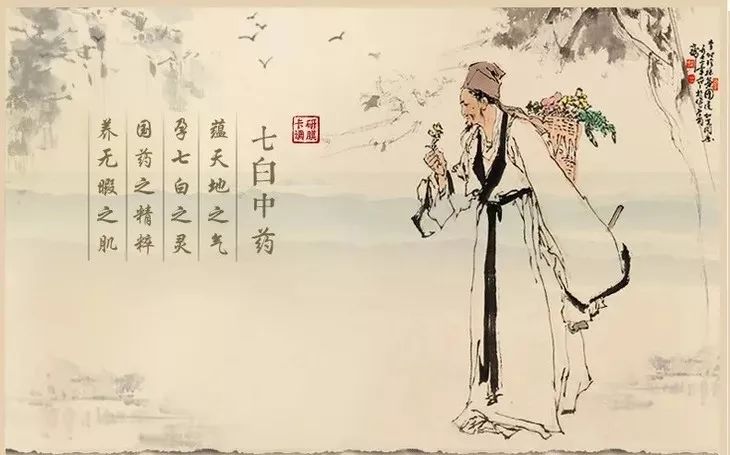 研膜
卡调
七白中药
蕴天地之气
孕七白之灵
国药之精粹
养无暇之肌